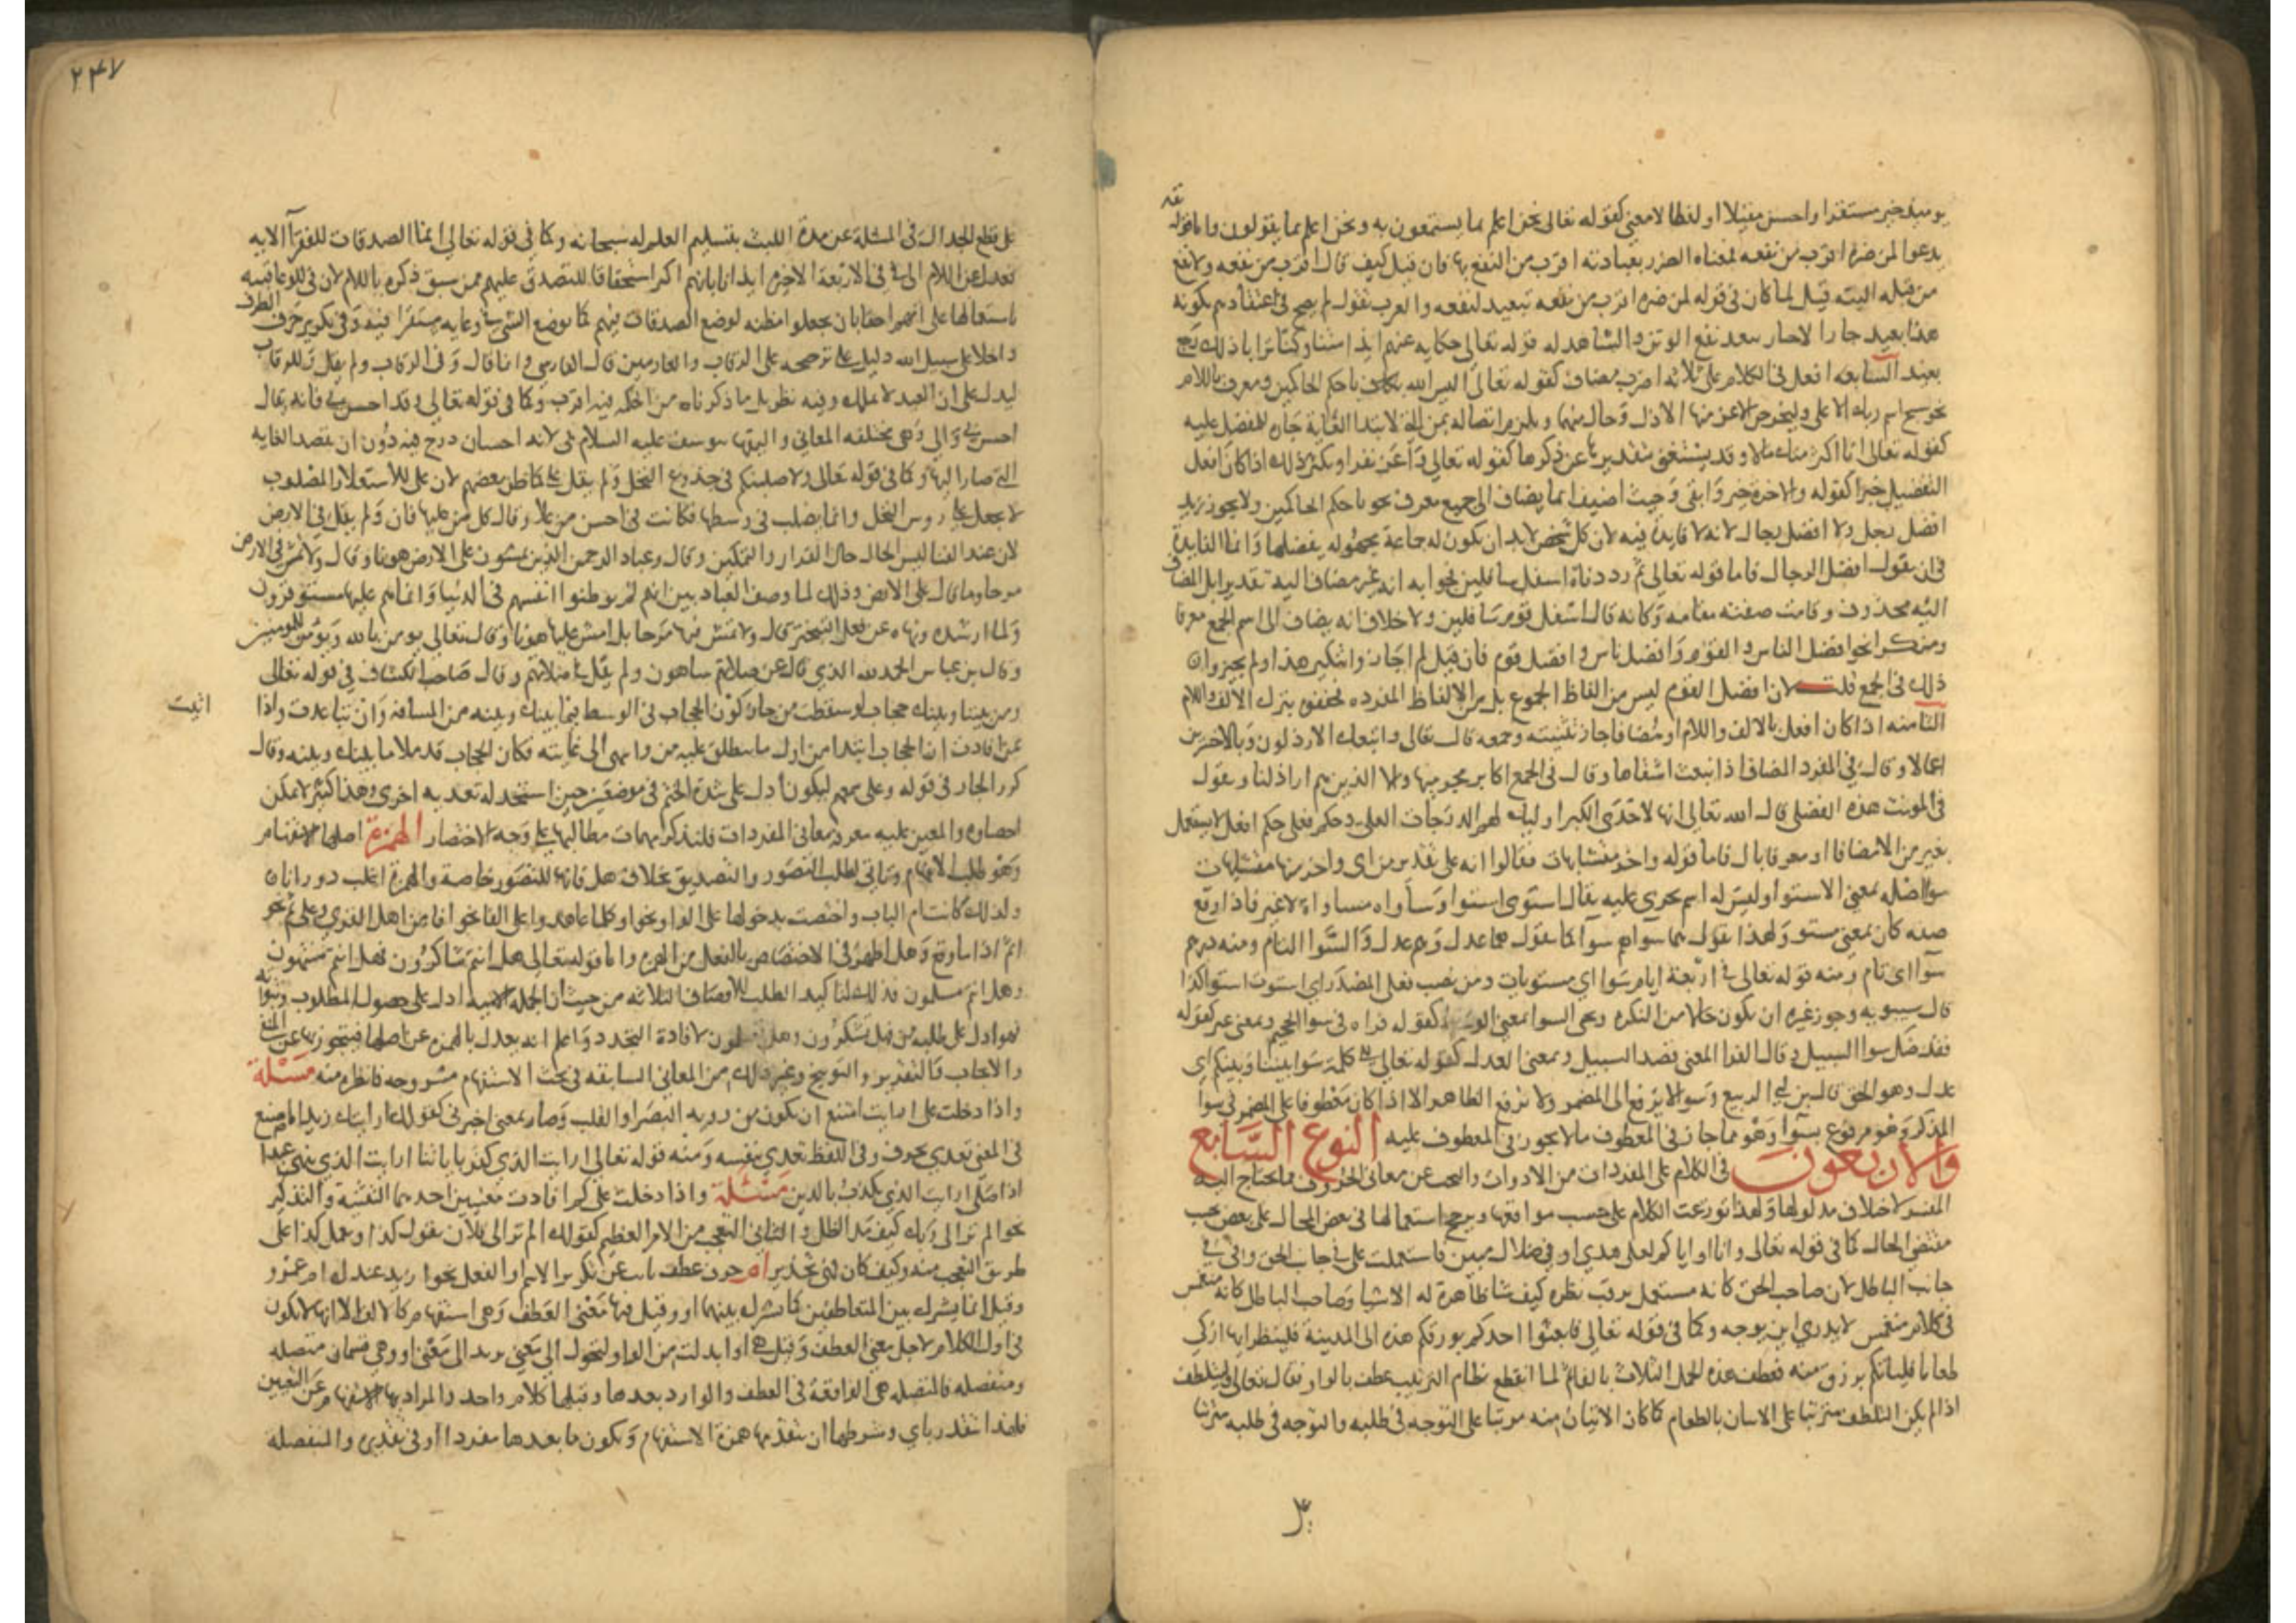 يوميذ خير مستقرا واحسن مقيلا او لفظا لا معنى كقوله تعالى نحن اعلم بما يستمعون به ونحن اعلم بما يقولون واما قوله
يدعوا لمن ضره اقرب من نفعه فمعناه الضرر بعبادته اقرب من النفع بها فان قيل كيف قال اقرب من نفعه ولا نفع
من قبله البته قيل لما كان في قوله لمن ضره اقرب من نفعه تبعيد لنفعه والعرب تقول لما لم يصح في اعتقادهم تكونه
هذا بعيد جاز الاخبار ببعد نفع الوثن والشاهد له قوله تعالى حكايه عنهم ايذا متنا وكنا ترابا ذلك رجع
بعيد السابعه افعل في الكلام على ثلاثه اضرب مضاف كقوله تعالى اليس الله باحكم الحاكمين ومعرف باللام
نحو سبح اسم ربك الاعلى وليخرجن الاعز منها الاذل وخال منهما ويلزم اتصاله بمن التي لابتدا الغاية جارة للمفضل عليه
كقوله تعالى انا اكثر منك مالا وقد يستغنى بتقديرها عن ذكرها كقوله تعالى واعز نفرا ويكثر ذلك اذا كان افعل
التفضيل خبرا كقوله والاخرة خير وابقى وحيث اضيف انما يضاف الى جميع معرف نحو باحكم الحاكمين ولا يجوز زيد
افضل رجل ولا افضل رجال لانه لا فايدة فيه لان كل شخص لا بد ان يكون له جماعة يجهوله يفضلها وانما الفايدة
في ان يقول افضل الرجال فاما قوله تعالى ثم رددناه اسفل سافلين فجوابه انه غير مضاف اليه تقديرا بل المضاف
اليه محذوف وقامت صفته مقامه وكانه قال اسفل قوم سافلين ولا خلاف انه يضاف الى اسم الجمع معرفا
ومنكرا نحو افضل الناس والقوم وافضل ناس وافضل قوم فان قيل لم اجازوا تنكير هذا ولم يجيزوا
ذلك في الجمع قلت لان افضل القوم ليس من الفاظ الجموع بل من الالفاظ المفرده فخففوه بترك الالف واللام
الثامنه اذا كان افعل بالالف واللام او مضافا جاز تثنيته وجمعه قال تعالى واتبعك الارذلون وبالاخسرين
اعمالا وقال في المفرد المضاف اذ انبعث اشقاها وقال في الجمع اكابر مجرميها والا الذين هم اراذلنا ويقول
في المونث هذه الفضلى قال الله تعالى انها لاحدى الكبر اوليك لهم الدرجات العلى وحكم فعلى حكم افعل لا يستعمل
بغير من الا مضافا او معرفا بال فاما قوله واخر متشابهات فقالوا انه على تقدير من اي واخر منها متشابهات
سوا اصله بمعنى الاستوا وليس له اسم يجري عليه يقال استوى استوا وساواه مساواة لا غير فاذا وقع
صفه كان بمعنى مستو ولهذا تقول هما سواهم سوا كما تقول هما عدل وهم عدل والسوا التام ومنه درهم
سوا اي تام ومنه قوله تعالى في اربعة ايام سوا اي مستويات ومن نصب فعلى المصدر اي استوت استوا كذا
قال سيبويه وجوز غيره ان يكون حالا من النكره ويجي السوا بمعنى الوسط كقوله فراه في سوا الجحيم وبمعنى غير كقوله
فقد ضل سوا السبيل وقال الفرا المعنى قصد السبيل وبمعنى العدل كقوله تعالى الى كلمة سوا بيننا وبينكم اي
عدل وهو الحق قال بن ابي الربيع وسوا لا يرفع الى المضمر ولا يرفع الظاهر الا اذا كان معطوفا على المضمر في سوا
المذكر وهو مرفوع بسوا وهو مما جاز في المعطوف ما لا يجوز في المعطوف عليه النوع السابع
والاربعون في الكلام على المفردات من الادوات والبحث عن معاني الحروف مما يحتاج اليه
المفسر لاختلاف مدلولها ولهذا توزعت الكلام على حسب مواقعها ويرجح استعمالها في بعض المحال على بعض بحسب
مقتضى الحال كما في قوله تعالى وانا او اياكم لعلى هدى او في ضلال مبين فاستعملت على في جانب الحق وفي في
جانب الباطل لان صاحب الحق كانه مستعل يرقب نظره كيف شا ظاهرة له الاشيا وصاحب الباطل كانه منغمس
في ظلام منغمس لا يدري اين يوجه وكما في قوله تعالى فابعثوا احدكم بورقكم هذه الى المدينة فلينظر ايها ازكى
طعاما فلياتكم برزق منه فعطف هذه الجمل الثلاث بالفا ثم لما انقطع نظام الترتيب عطف بالواو فقال تعالى وليتلطف
اذ لم يكن التلطف مترتبا على الاتيان بالطعام كما كان الاتيان منه مرتبا على التوجه في طلبه والتوجه في طلبه مترتبا
٢٤٧
على قطع الجدال في المسئلة عن مدة اللبث بتسليم العلم له سبحانه وكما في قوله تعالى انما الصدقات للفقرا الايه
فعدل عن اللام الى في في الاربعة الاخيرة ايذانا بانهم اكثر استحقاقا للتصدق عليهم ممن سبق ذكره باللام لان في للوعا فنبه
باستعمالها على انهم احقا بان يجعلوا مظنه لوضع الصدقات فيهم كما يوضع الشي في وعايه مستقرا فيه وفي تكرير حرف الظرف
داخلا على سبيل الله دليل على ترجيحه على الرقاب والغارمين قال الفارسي وانما قال وفي الرقاب ولم يقل وللرقاب
ليدل على ان العبد لا يملك وفيه نظر بل ما ذكرناه من الحكمه فيه اقرب وكما في قوله تعالى وقد احسن بي فانه يقال
احسن بي والي وهي مختلفه المعاني واليقها بيوسف عليه السلام بي لانه احسان درج فيه دون ان يقصد الغايه
التي صار اليها وكما في قوله تعالى ولاصلبنكم في جذوع النخل ولم يقل على كما ظن بعضهم لان على للاستعلا والمصلوب
لا يجعل على روس النخل وانما يصلب في وسطها فكانت في احسن من على وقال كل من عليها فان ولم يقل في الارض
لان عند الفنا ليس الحال حال القرار والتمكين وقال وعباد الرحمن الذين يمشون على الارض هونا وقال ولا تمش في الارض
مرحا وما قال على الارض وذلك لما وصف العباد بين انهم لم يوطنوا انفسهم في الدنيا وانما هم عليها مستوفزون
ولما ارشده ونهاه عن فعل التبختر قال ولا تمش فيها مرحا بل امش عليها هونا وقال تعالى يومن بالله ويومن للمومنين
وقال بن عباس الحمد لله الذي قال عن صلاتهم ساهون ولم يقل في صلاتهم وقال صاحب الكشاف في قوله تعالى
ومن بيننا وبينك حجاب لو سقطت من جاز كون الحجاب في الوسط بيننا وبينه من المسافة وان تباعدت واذا
اتيت
من افادت ان الحجاب ابتدا من اول ما ينطلق عليه من وانتهى الى غايته فكان الحجاب قد ملا ما بينك وبينه وقال
كرر الجار في قوله وعلى سمعهم ليكون ادل على شدة الختم في موضعين حين استجد له تعديه اخرى وهذا كثير لا يمكن
احصاوه والمعين عليه معرفة معاني المفردات فلنذكر مهمات مطالبها على وجه الاختصار الهمزة اصلها الاستفهام
وهو طلب الافهام وتاتي لطلب التصور والتصديق بخلاف هل فانها للتصور خاصة والهمزة اغلب دورانا
ولذلك كانت ام الباب واختصت بدخولها على الواو نحو اوكلما عاهدوا وعلى الفا نحو افامن اهل القرى وعلى ثم نحو
اثم اذا ما وقع وهل اظهر في الاختصاص بالفعل من الهمزة واما قوله تعالى فهل انتم شاكرون فهل انتم منتهون
وهل انتم مسلمون فذلك لتاكيد الطلب للاوصاف الثلاثه من حيث ان الجملة الاسمية ادل على حصول المطلوب وثبوته
فهو ادل على طلبه من فهل تشكرون وهل تسلمون لافادة التجدد واعلم انه يعدل بالهمزة عن اصلها فيتجوز بها عن النفي
والايجاب والتقرير والتوبيخ وغير ذلك من المعاني السابقه في بحث الاستفهام مشروحه فانظره منه مسئلة
واذا دخلت على رايت امتنع ان يكون من رويه البصر او القلب وصار بمعنى اخبرني كقولك ارايتك زيدا ما صنع
في المعنى تعدى بحرف وفي اللفظ تعدى بنفسه ومنه قوله تعالى ارايت الذي كفر باياتنا ارايت الذي ينهى عبدا
اذا صلى ارايت الذي يكذب بالدين مسئلة واذا دخلت على لم افادت معنيين احدهما التنبيه والتذكير
نحو الم تر الى ربك كيف مد الظل والثاني التعجب من الامر العظيم كقولك الم تر الى فلان يقول كذا ويعمل كذا على
طريق التعجب منه وكيف كان فهي تحذير ام حرف عطف ناب عن تكرير الاسم او الفعل نحو ازيد عندك ام عمرو
وقيل انما يشرك بين المتعاطفين كما يشرك بينهما او وقيل فيها معنى العطف وهي استفهام كالالف الا انها لا تكون
في اول الكلام لاجل معنى العطف وقيل هي او ابدلت من الواو لتحول الى معنى يريد الى معنى او وهي قسمان متصله
ومنفصله فالمتصله هي الواقعة في العطف والوارد بعدها وقبلها كلام واحد والمراد بها الاستفهام عن التعيين
فلهذا تقدر باي وشرطها ان يتقدمها همزة الاستفهام ويكون ما بعدها مفردا او في تقديره والمنفصله